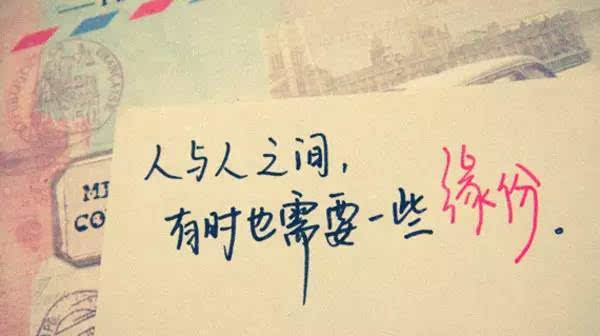 人与人之间，
有时也需要一些缘份。
MI
CO